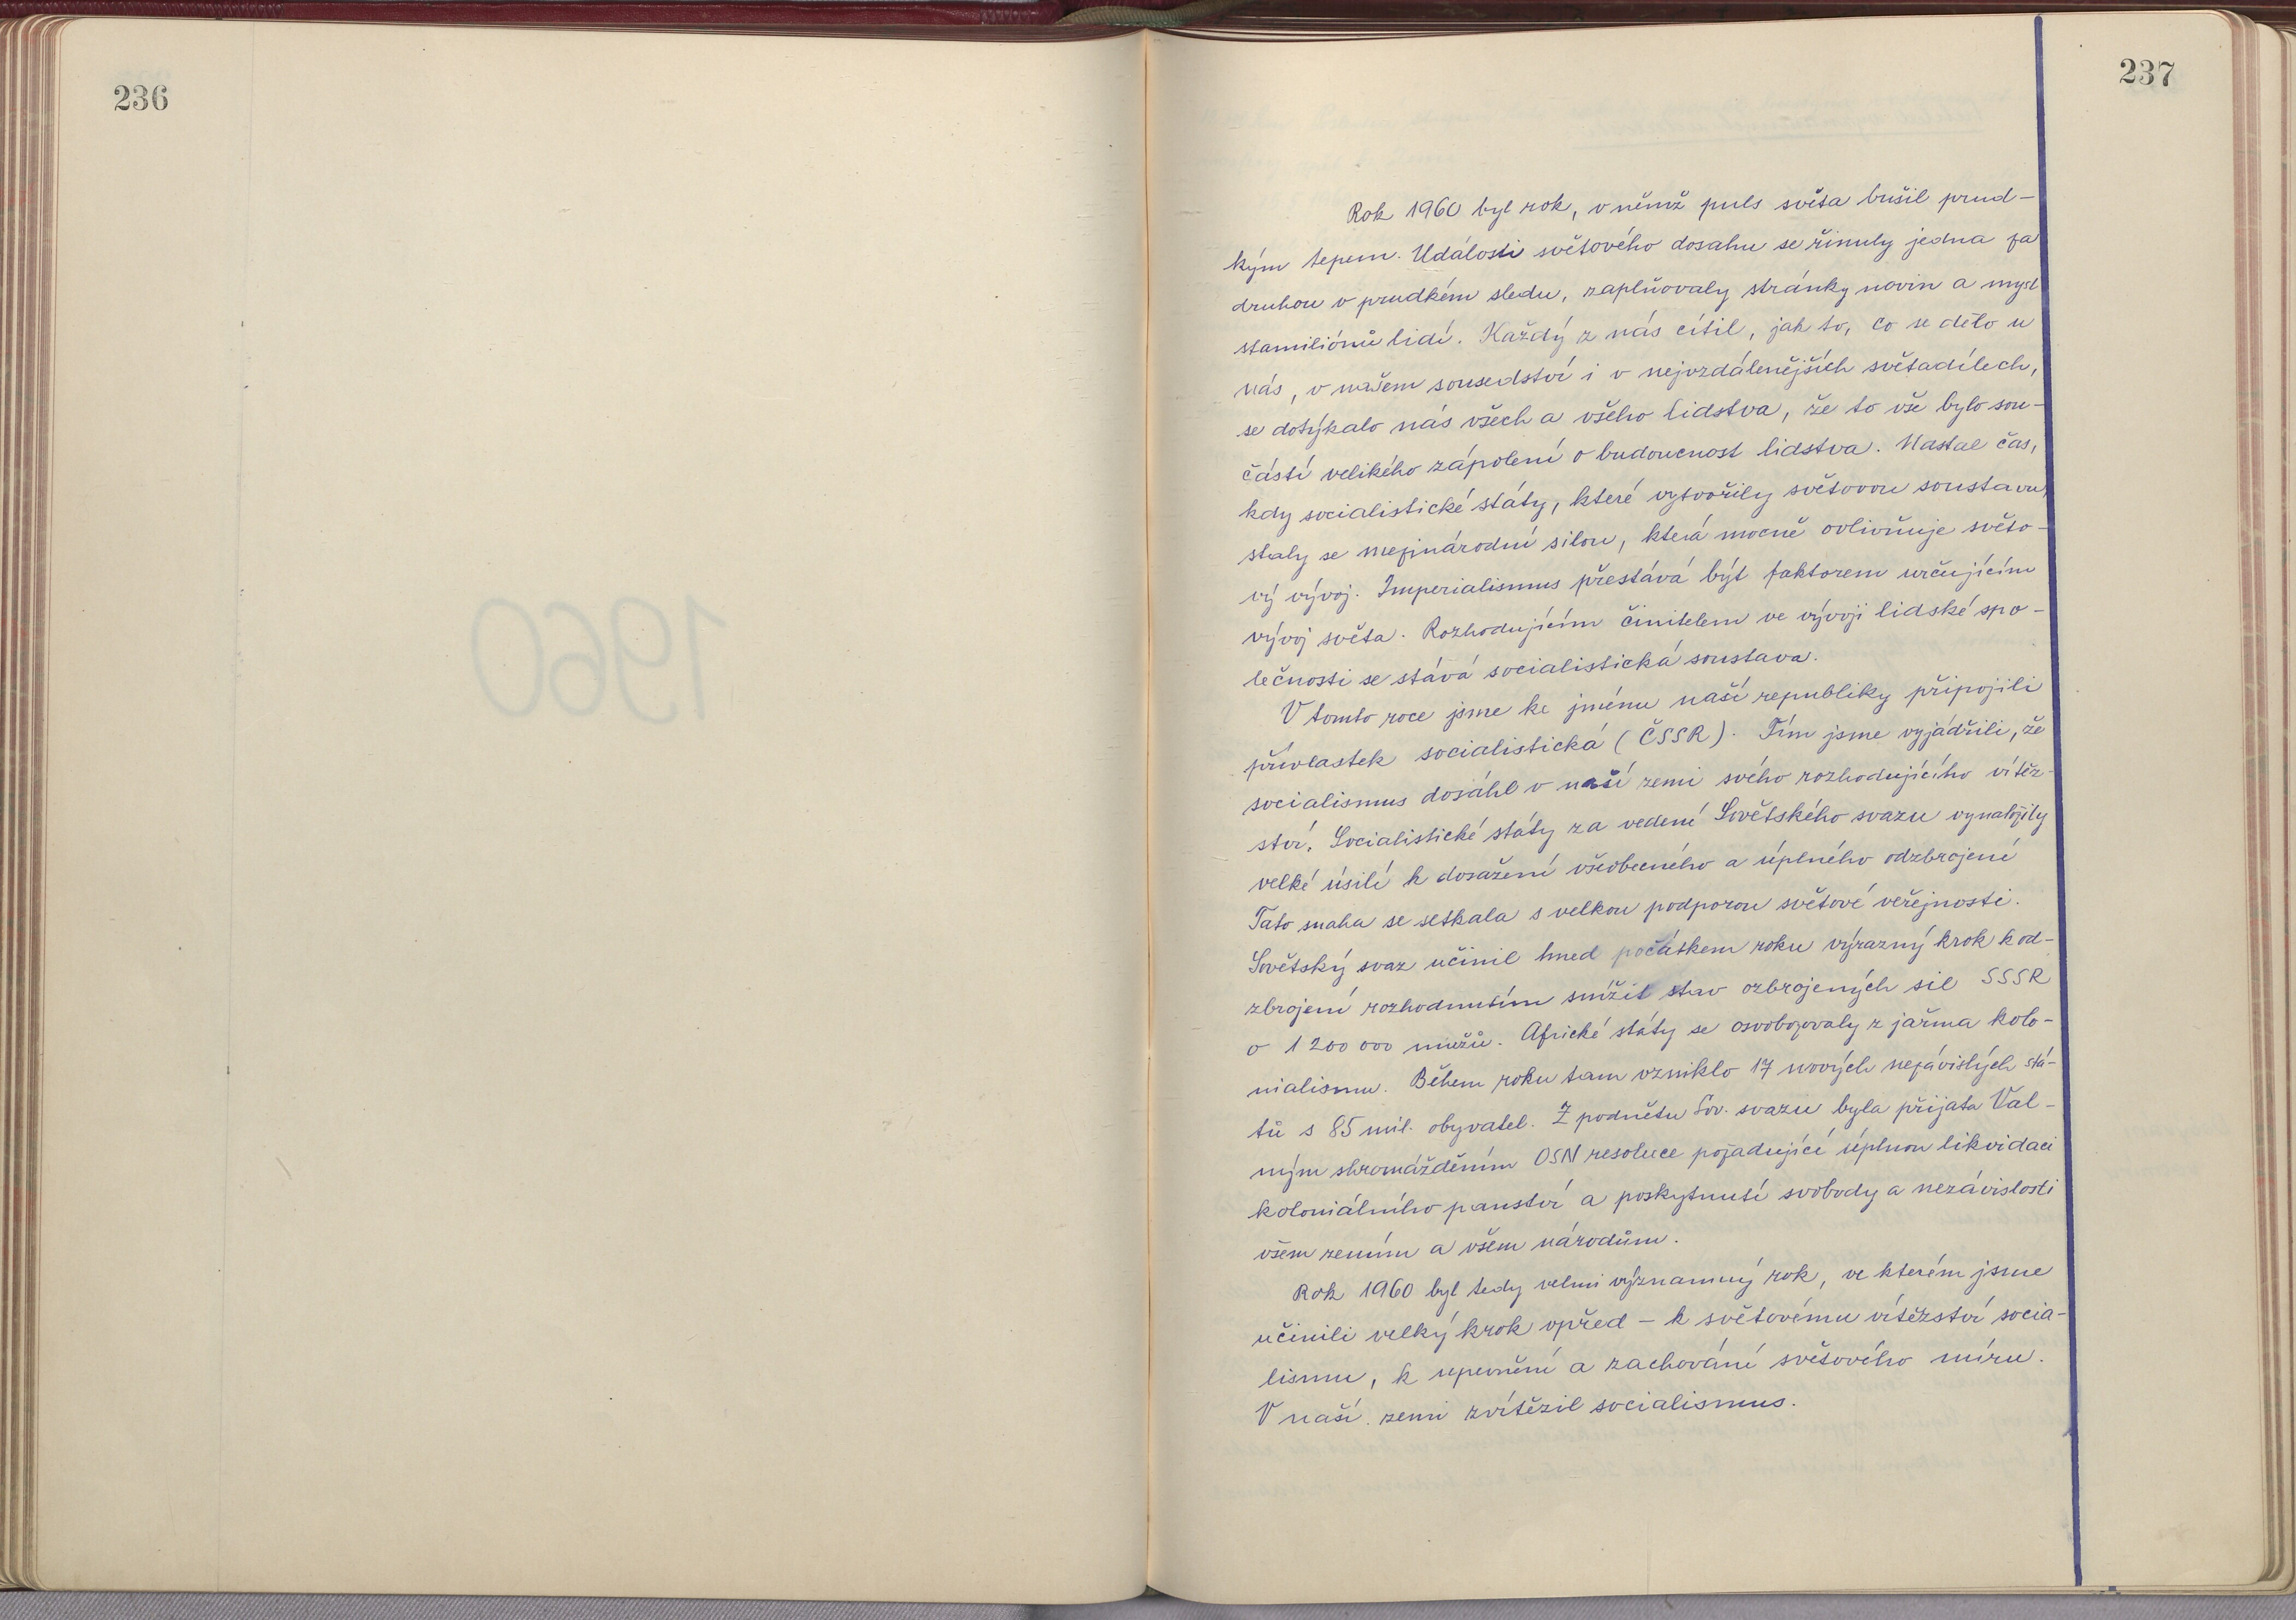 236
237
Rok 1960 byl rok, v němž puls světa bušil prud-
kým tepem. Události světového dosahu se řinuly jedna za
druhou v prudkém sledu, zaplňovaly stránky novin a mysl
stamiliónů lidí. Každý z nás cítil, jak to, co se dělo u
nás, v našem sousedství i v nejvzdálenějších světadílech,
se dotýkalo nás všech a všeho lidstva, že to vše bylo sou-
částí velikého zápolení o budoucnost lidstva. Nastal čas,
kdy socialistické státy, které vytvořily světovou soustavu,
staly se mezinárodní silou, která mocně ovlivňuje světo-
vý vývoj. Imperialismus přestává být faktorem určujícím
vývoj světa. Rozhodujícím činitelem ve vývoji lidské spo-
lečnosti se stává socialistická soustava.
V tomto roce jsme ke jménu naší republiky připojili
přívlastek socialistická (ČSSR). Tím jsme vyjádřili, že
socialismus dosáhl v naší zemi svého rozhodujícího vítěz-
ství. Socialistické státy za vedení Sovětského svazu vynaložily
velké úsilí k dosažení všeobecného a úplného odzbrojení
Tato snaha se setkala s velkou podporou světové veřejnosti.
Sovětský svaz učinil hned počátkem roku výrazný krok k od-
zbrojení rozhodnutím snížit stav ozbrojených sil SSSR
o 1 200 000 mužů. Africké státy se osvobozovaly z jařma kolo-
nialismu. Během roku tam vzniklo 17 nových nezávislých stá-
tů s 85 mil. obyvatel. Z podnětu Sov. svazu byla přijata Val-
ným shromážděním OSN resoluce požadující úplnou likvidaci
koloniálního panství a poskytnutí svobody a nezávislosti
všem zemím a všem národům.
Rok 1960 byl tedy velmi významný rok, ve kterém jsme
učinili velký krok vpřed - k světovému vítězství socia-
lismu, k upevnění a zachování světového míru.
V naší zemi zvítězil socialismus.